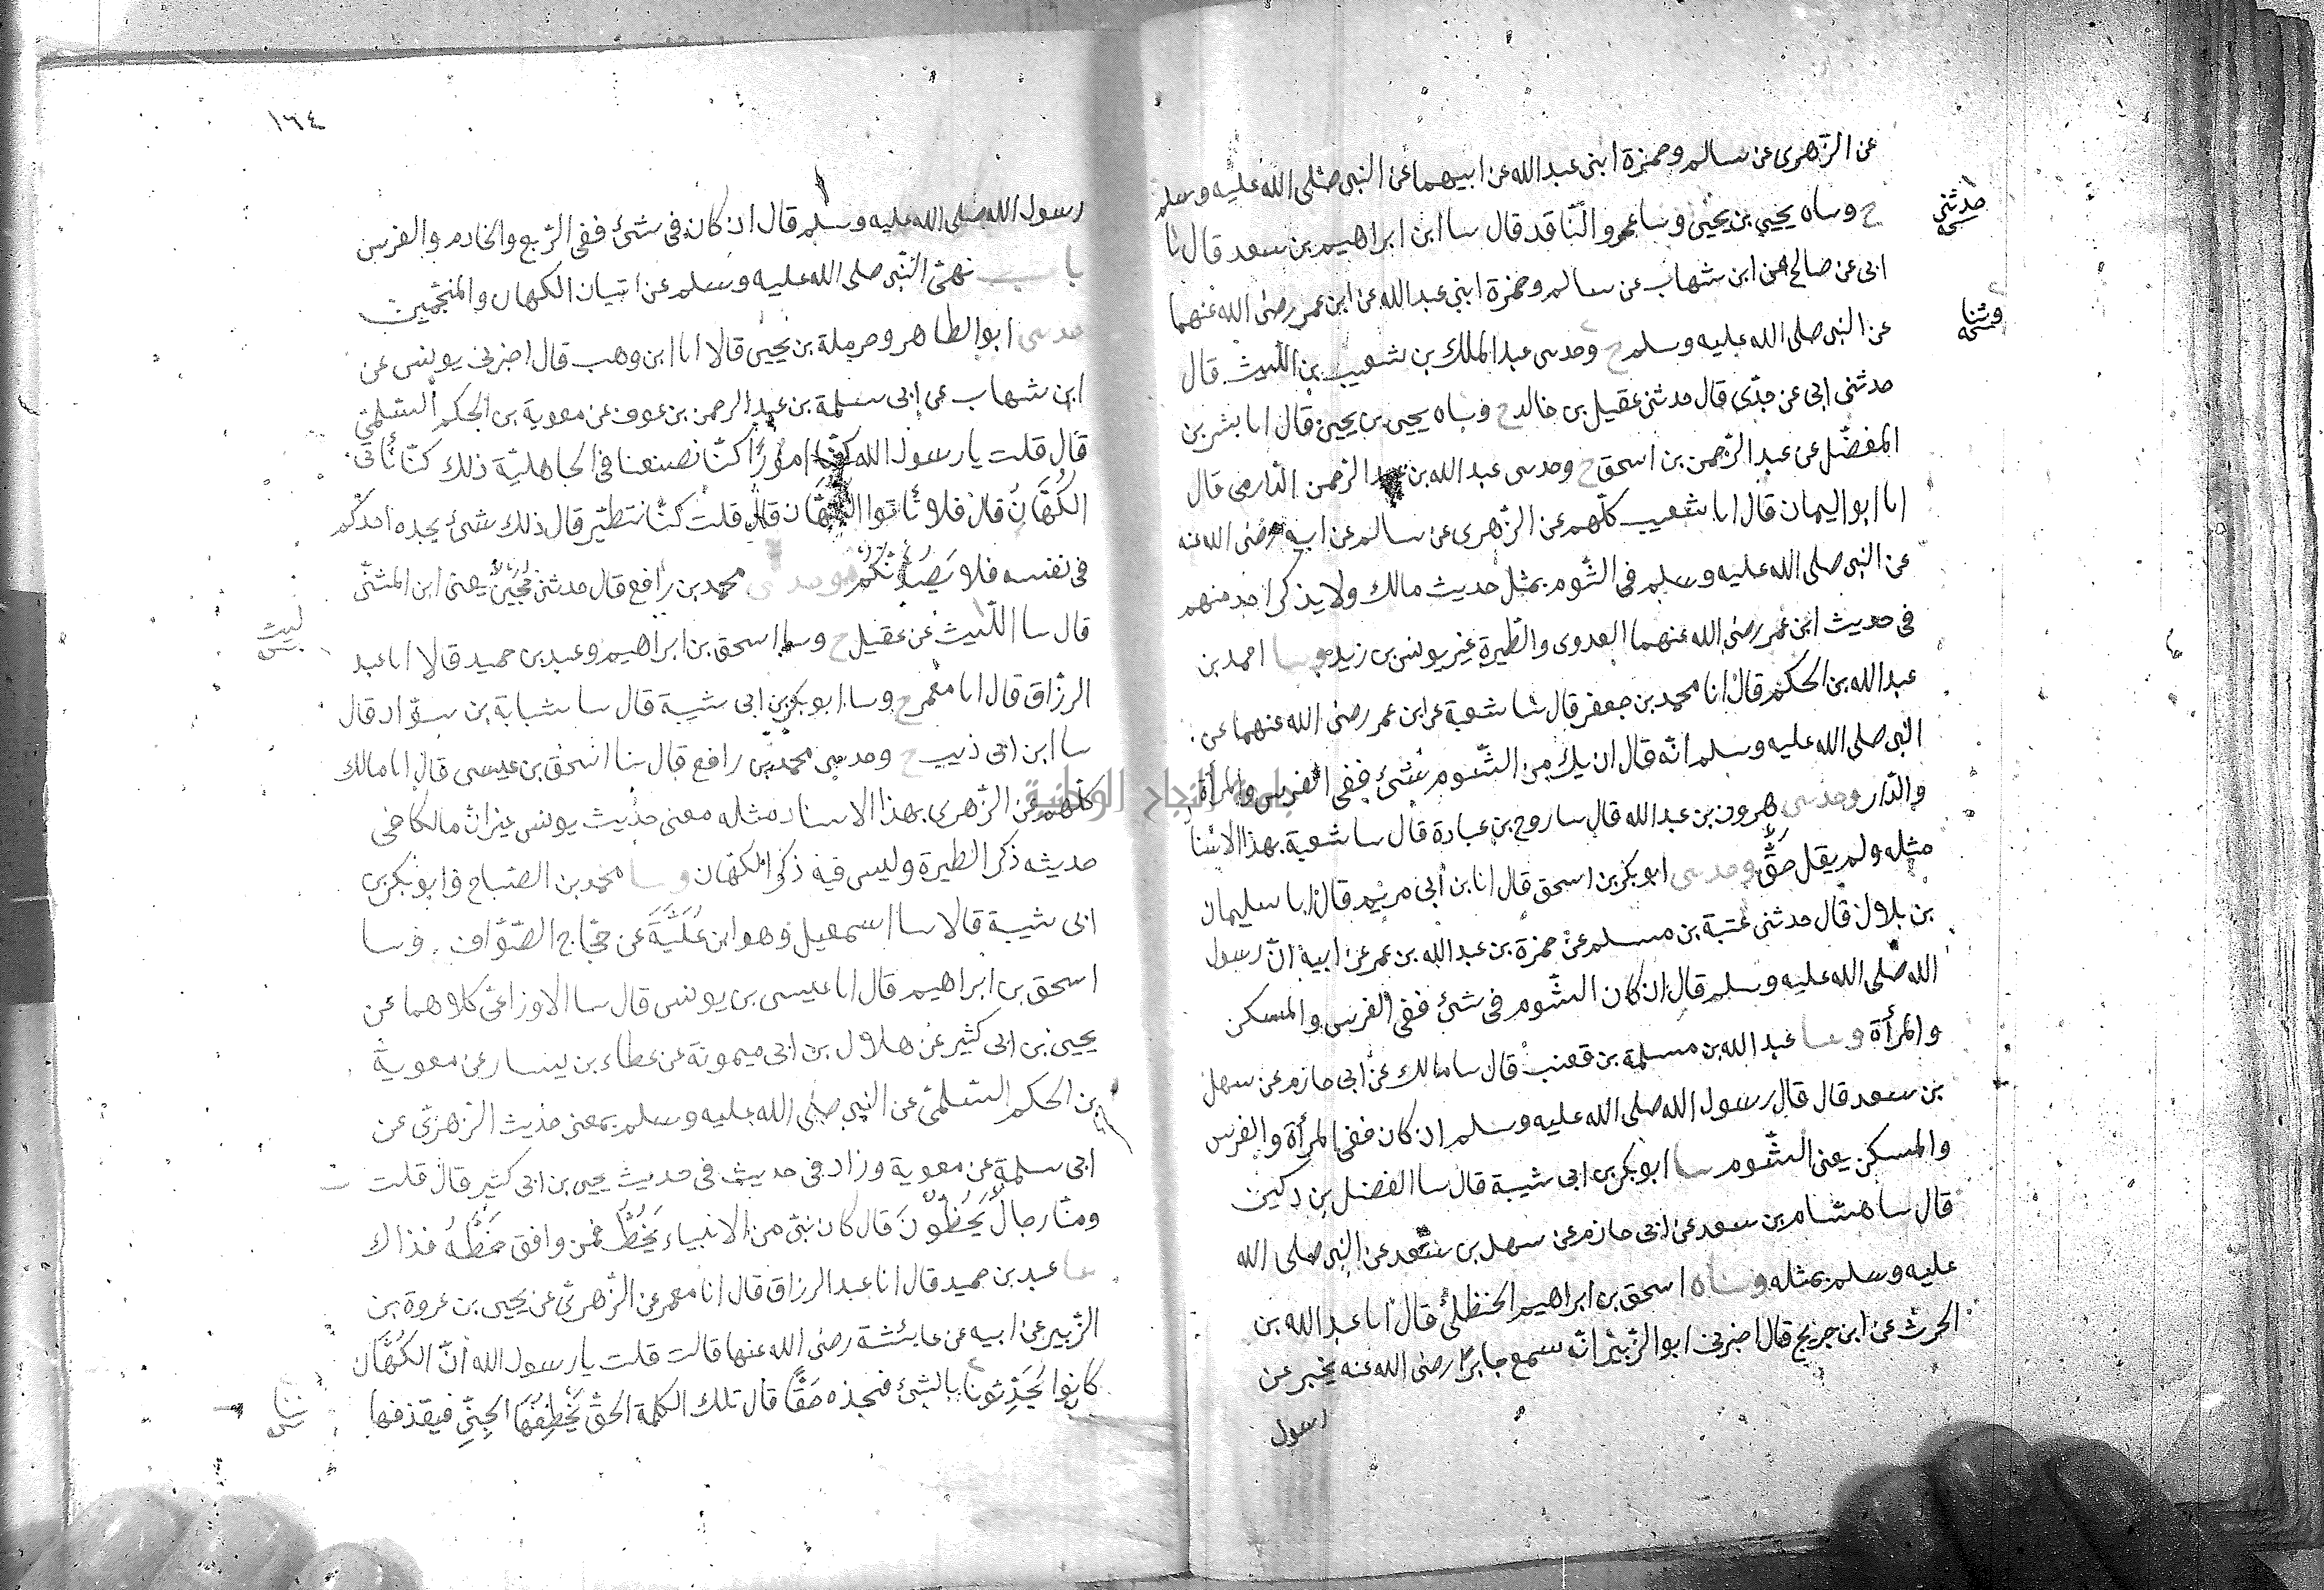 عن الزهرى عن سالم وحمزة ابنى عبد الله عن ابيهما عن النبى صلى الله عليه وسلم
ح وساه يحيى بن يحيى وسا عمرو الناقد قال سا ابن ابراهيم بن سعد قال نا
حدثنى
ابى عن صالح عن ابن شهاب عن سالم وحمزة ابنى عبد الله عن ابن عمر رضى الله عنهما
عن النبى صلى الله عليه وسلم ح وحدسى عبد الملك بن شعيب بن الليث قال
حدثنى ابى عن جدى قال حدثنى عقيل بن خالد ح وساه يحيى بن يحيى قال انا بشر بن
المفضل عن عبد الرحمن بن اسحق ح وحدسى عبد الله بن عبد الرحمن الدارمى قال
انا ابو اليمان قال انا شعيب كلهم عن الزهرى عن سالم عن ابيه رضى الله عنه
عن النبى صلى الله عليه وسلم فى الشوم بمثل حديث مالك ولا يذكر احد منهم
فى حديث ابن عمر رضى الله عنهما العدوى والطيرة غير يونس بن زيد وسا احمد بن
عبد الله بن الحكم قال انا محمد بن جعفر قال ثنا شعبة عن ابن عمر رضى الله عنهما عن
النبى صلى الله عليه وسلم انه قال ان يك من الشوم شئ ففى الفرس والمرأة
والدار وحدسى هرون بن عبد الله قال سا روح بن عبادة قال سا شعبة بهذا الاسنا
مثله ولم يقل حق وحدسى ابو بكر بن اسحق قال انا بن ابى مريم قال انا سليمان
بن بلال قال حدثنى عتبة بن مسلم عن حمزة بن عبد الله بن عمر عن ابيه ان رسول
الله صلى الله عليه وسلم قال ان كان الشوم فى شئ ففى الفرس والمسكن
والمرأة وسا عبد الله بن مسلمة بن قعنب قال سا مالك عن ابى حازم عن سهل
بن سعد قال قال رسول الله صلى الله عليه وسلم ان كان ففى المرأة والفرس
والمسكن يعنى الشوم سا ابو بكر بن ابى شيبة قال سا الفضل بن دكين
قال سا هشام بن سعد عن ابى حازم عن سهل بن سعد عن النبى صلى الله
عليه وسلم بمثله وساه اسحق بن ابراهيم الحنظلى قال انا عبد الله بن
الحرث عن ابن جريج قال اخبرنى ابو الزبير انه سمع جابرا رضى الله عنه يخبر عن
رسول
١٦٤
رسول الله صلى الله عليه وسلم قال ان كان فى شئ ففى الربع والخادم والفرس
باب نهى النبى صلى الله عليه وسلم عن اتيان الكهان والمنجمين
حدسى ابو الطاهر وحرملة بن يحيى قالا انا ابن وهب قال اخبرنى يونس عن
ابن شهاب عن ابى سلمة بن عبد الرحمن بن عوف عن معوية بن الحكم السلمى
قال قلت يا رسول الله امورا كنا نصنعنا فى الجاهلية ذلك كنا نأتى
الكهان قال فلا تأتوا الكهان قال قلت كنا نتطير قال ذلك شئ يجده احدكم
فى نفسه فلا يصدنكم وحدسى محمد بن رافع قال حدثنى حجين يعنى ابن المثنى
قال سا الليث عن عقيل ح وسا اسحق بن ابراهيم وعبد بن حميد قالا انا عبد
ليث
الرزاق قال انا معمر ح وسا ابو بكر بن ابى شيبة قال سا شبابة بن سوار قال
سا ابن ابى ذيب ح وحدسى محمد بن رافع قال سا اسحق بن عيسى قال انا مالك
كلهم عن الزهرى بهذا الاسناد مثله معنى حديث يونس غير ان مالكا فى
حديثه ذكر الطيرة وليس فيه ذكر الكهان وسا محمد بن الصباح وابو بكر بن
ابى شيبة قالا سا اسمعيل وهو ابن علية عن حجاج الصواف وسا
اسحق بن ابراهيم قال انا عيسى بن يونس قال سا الاوزاعى كلاهما عن
يحيى بن ابى كثير عن هلال بن ابى ميمونة عن عطاء بن يسار عن معوية
بن الحكم السلمى عن النبى صلى الله عليه وسلم بمعنى حديث الزهرى عن
ابى سلمة عن معوية وزاد فى حديث فى حديث يحيى بن ابى كثير قال قلت
ومنا رجال يخطون قال كان نبى من الانبياء يخط فمن وافق خطه فذاك
سا عبد بن حميد قال انا عبد الرزاق قال انا معمر عن الزهرى عن يحيى بن عروة بن
الزبير عن ابيه عن عائشة رضى الله عنها قالت قلت يا رسول الله ان الكهان
كانوا يحدثونا بالشئ فنجده حقا قال تلك الكلمة الحق يخطفها الجنى فيقذفها
جامعة النجاح الوطنية